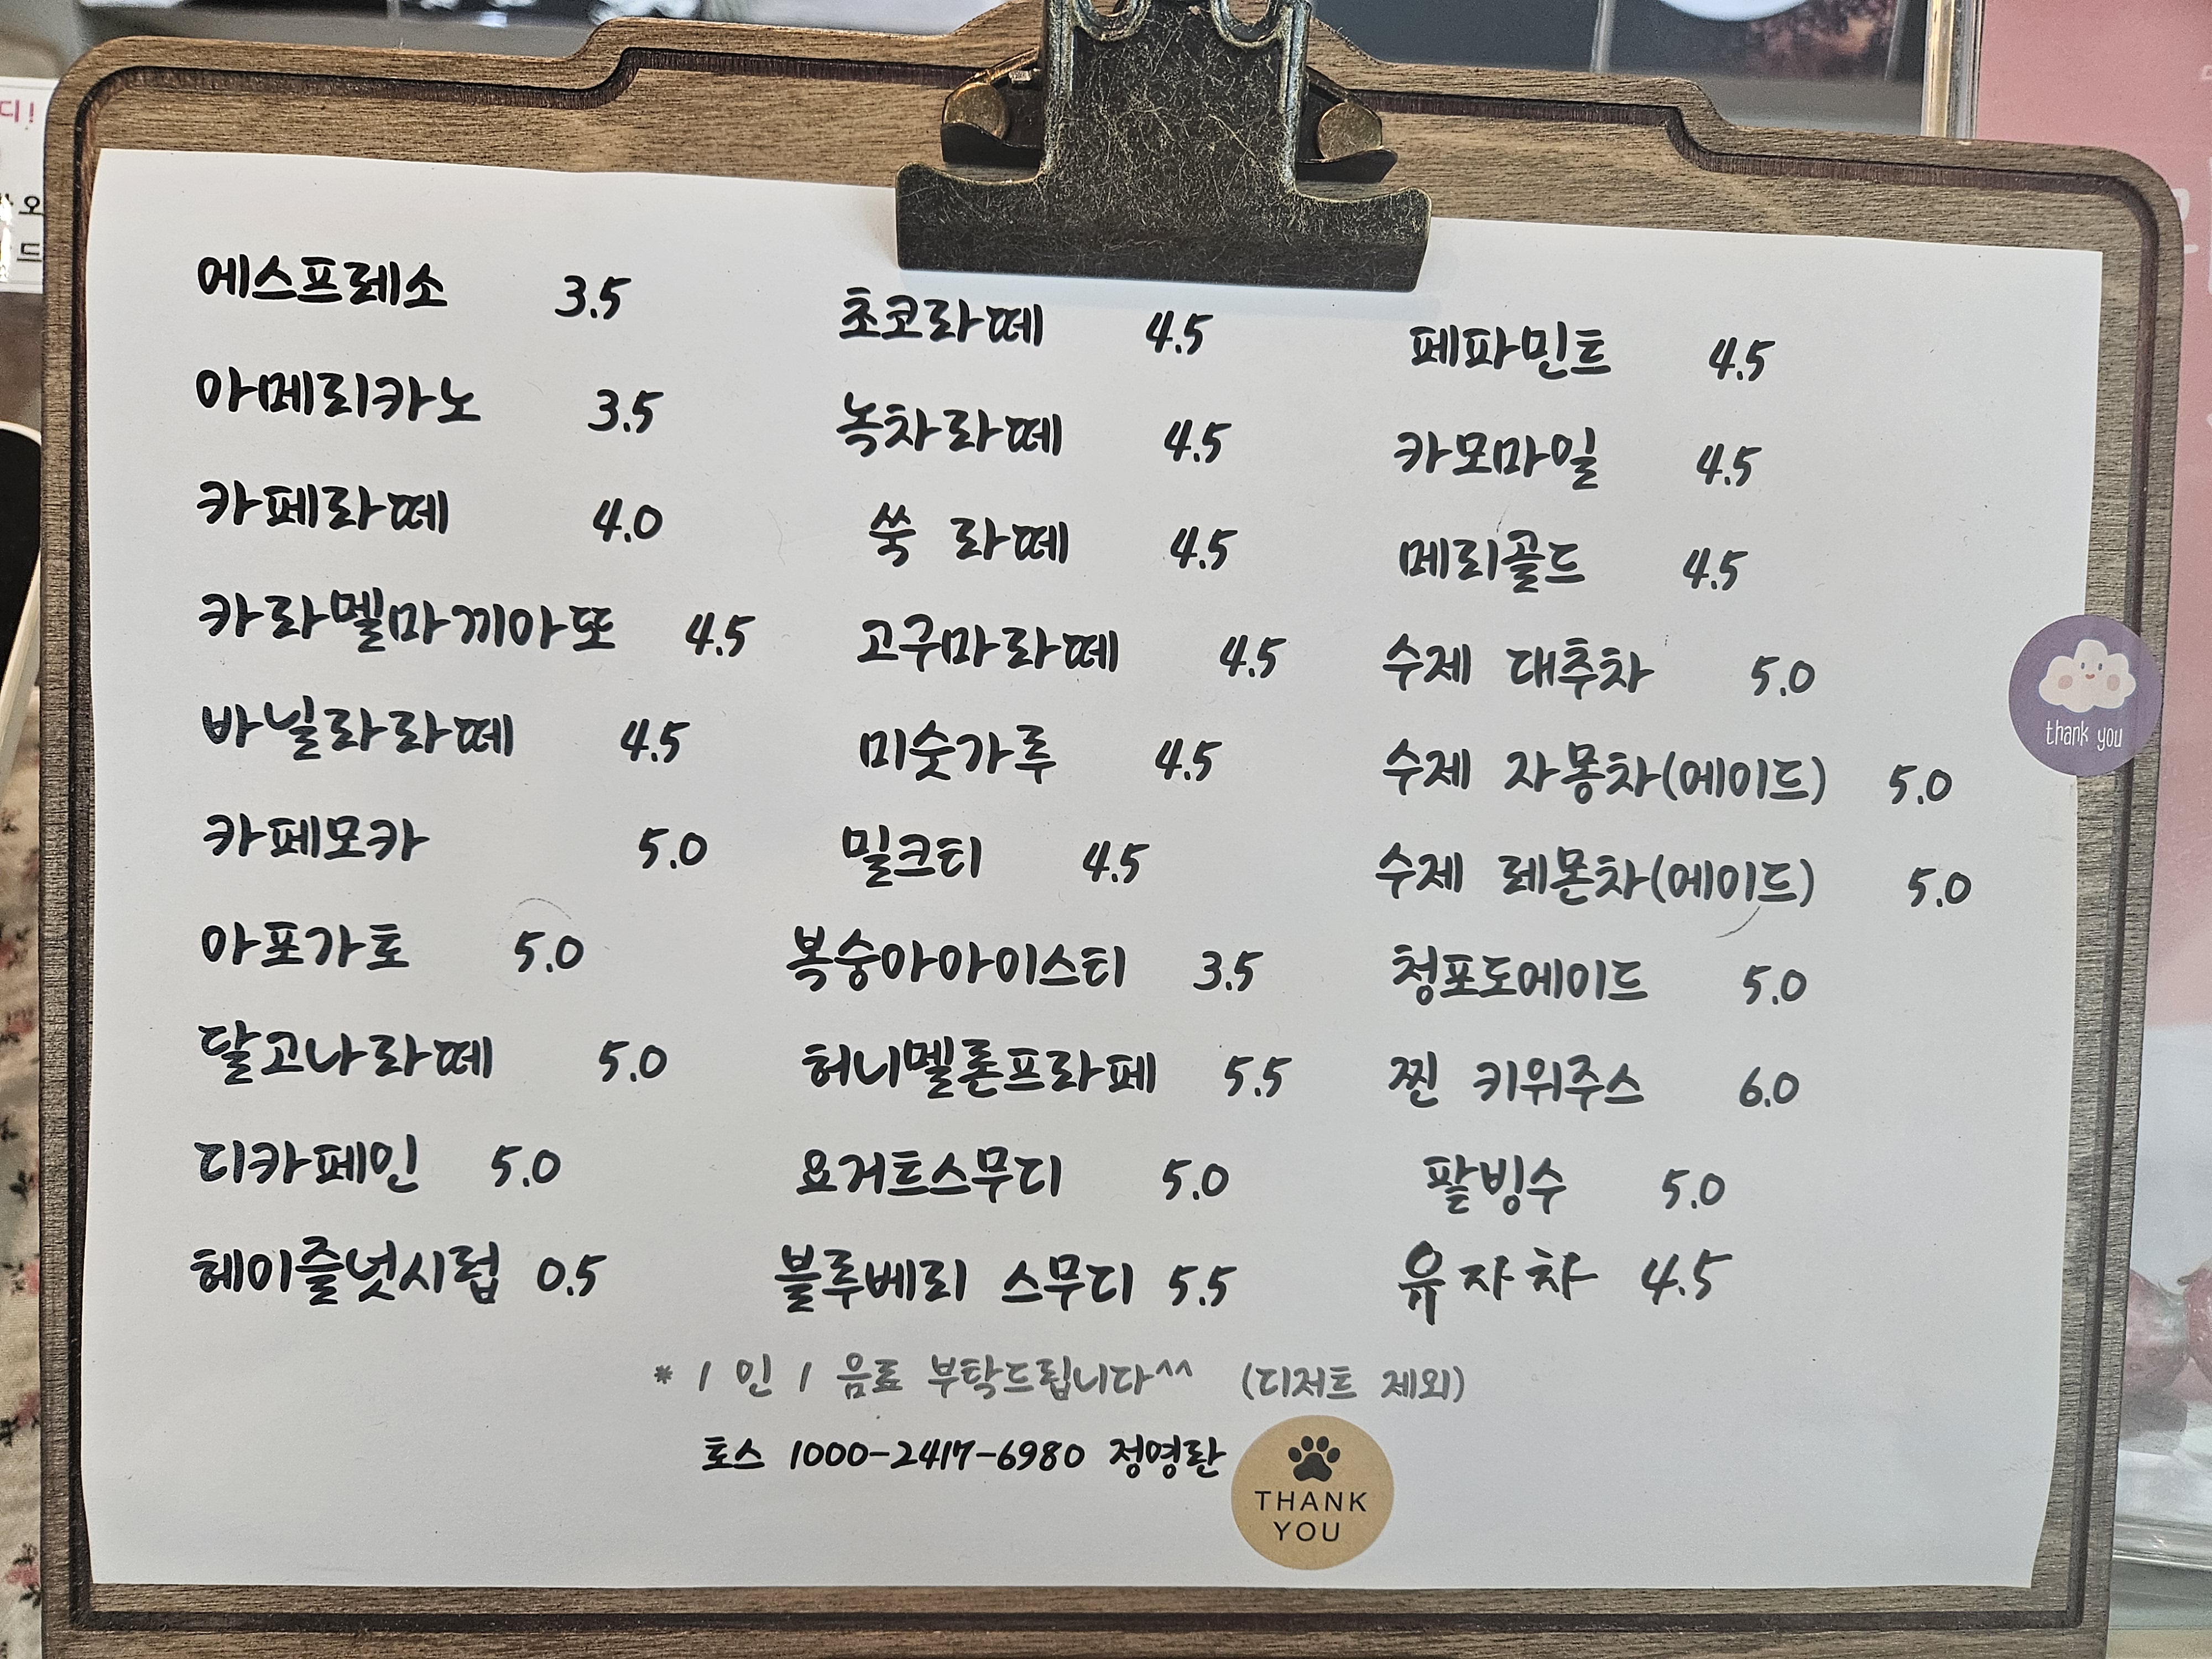 에스프레소 3.5
아메리카노 3.5
카페라떼 4.0
카라멜마끼아또 4.5
바닐라라떼 4.5
카페모카 5.0
아포가토 5.0
달고나라떼 5.0
디카페인 5.0
헤이즐넛시럽 0.5
초코라떼 4.5
녹차라떼 4.5
쑥 라떼 4.5
고구마라떼 4.5
미숫가루 4.5
밀크티 4.5
복숭아아이스티 3.5
허니멜론프라페 5.5
요거트스무디 5.0
블루베리 스무디 5.5
페파민트 4.5
카모마일 4.5
메리골드 4.5
수제 대추차 5.0
수제 자몽차(에이드) 5.0
수제 레몬차(에이드) 5.0
청포도에이드 5.0
찐 키위주스 6.0
팥빙수 5.0
유자차 4.5
* 1 인 1 음료 부탁드립니다^^ (디저트 제외)
토스 1000-2417-6980 정영란
THANK
YOU
thank you
디!
오
드